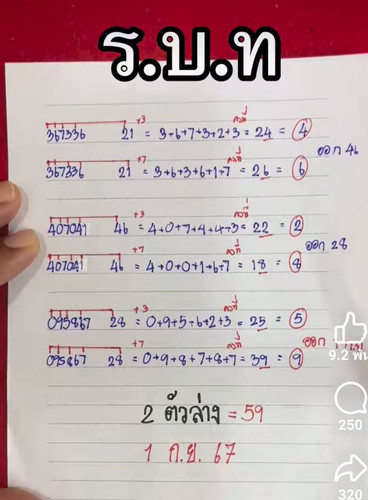 ร.บ.ท
+3 คงที่
367336 21 = 3+6+7+3+2+3 = 24 = 4
ออก 46
+7 คงที่
367336 21 = 3+6+3+6+1+7 = 26 = 6
+3 คงที่
407041 46 = 4+0+7+4+4+3 = 22 = 2
ออก 28
+7 คงที่
407041 46 = 4+0+0+1+6+7 = 18 = 8
+3 คงที่
095867 28 = 0+9+5+6+2+3 = 25 = 5
ออก
+7 คงที่
095867 28 = 0+9+8+7+8+7 = 39 = 9
9.2 พัน
2 ตัวล่าง = 59
250
1 ก.ย. 67
320